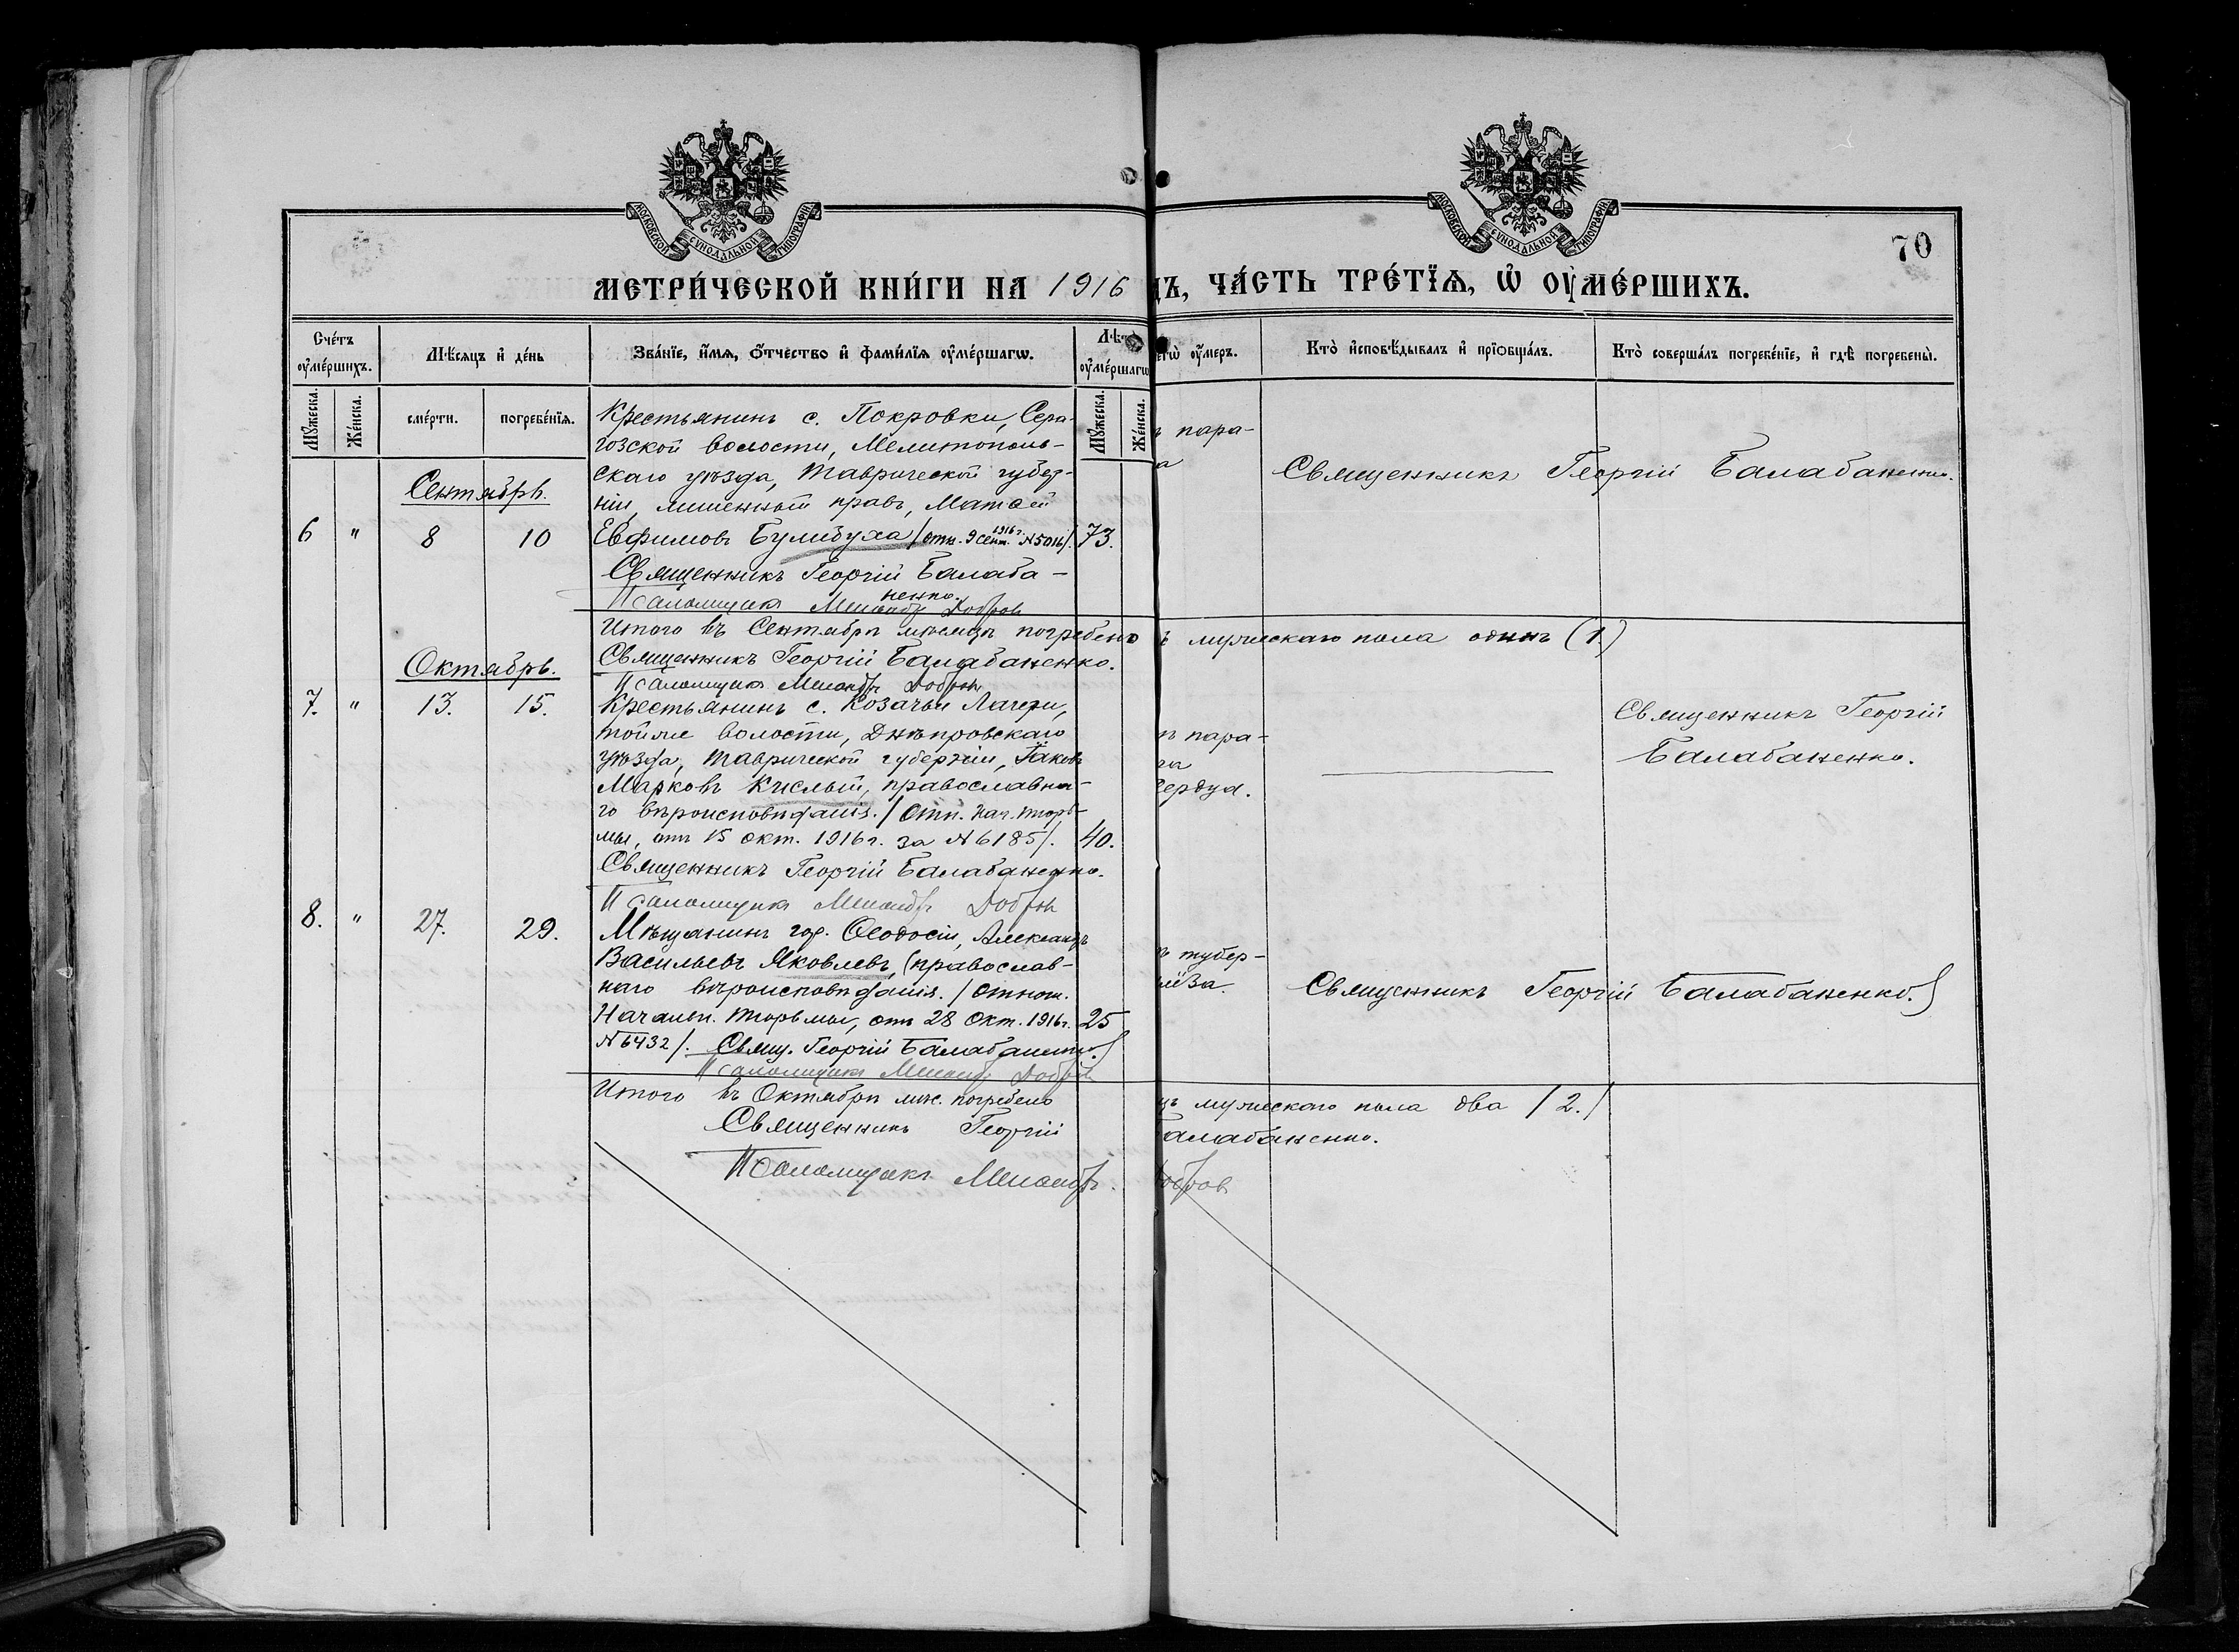 МОСКОВСКОЙ СѴНОДАЛЬНОЙ ТИПОГРАФІИ
МОСКОВСКОЙ СѴНОДАЛЬНОЙ ТИПОГРАФІИ
70
МЕТРИ́ЧЕСКОЙ КНИ́ГИ НА 1916 дъ, ЧА́СТЬ ТРЕ́ТЇѦ, Ѡ҆ ОУ҆МЕ́РШИХЪ.
Сче́тъ оумéршихъ.
Мѣ́сяцъ и де́нь
Зва́нїе, и́мѧ, о́тчество и фами́лїѧ оуме́ршагѡ.
Лѣт
оуме́ршагѡ
егѡ̀ оу́меръ.
Кто̀ исповѣ́дывалъ и прїѡбща́лъ.
Кто̀ соверша́лъ погребе́нїе, и гдѣ̀ погребены̀.
Мꙋ́жеска.
Же́нска.
сме́рти.
погребе́нїѧ.
Мꙋ́жеска.
Же́нска.
Сентябрь.
6 " 8 10
Крестьянинъ с. Покровки, Сера-
гозской волости, Мелитополь-
скаго уѣзда, Таврической губер-
ніи, лишенный правъ, Матѳей
Евфимовъ Булибуха / отн. 9 сент. 1916 г. № 5016/. 73.
Священникъ Георгій Балаба-
ненко.
Псаломщикъ Менандръ Добровъ
ъ пара-
а
Священникъ Георгій Балабаненко.
Итого въ Сентябрѣ мѣсяцѣ погребено
ъ мужескаго пола одинъ (1.)
Священникъ Георгій Балабаненко.
Псаломщикъ Менандръ Добровъ
Октябрь.
7. " 13. 15.
Крестьянинъ с. Козачьи Лагери,
той же волости, Днѣпровскаго
уѣзда, Таврической губерніи, Іаковъ
Марковъ Кислый, православна-
го вѣроисповѣданія. / Отн. Нач. тюрь-
мы, отъ 15 окт. 1916 г. за № 6185/. 40.
Священникъ Георгій Балабаненко.
Псаломщикъ Менандръ Добровъ
ъ пара-
ча
сердца.
Священникъ Георгій
Балабаненко.
8. " 27. 29.
Мѣщанинъ гор. Ѳеодосіи, Александръ
Васильевъ Яковлевъ, (православ-
наго вѣроисповѣданія. / Отнош.
Начальн. тюрьмы, отъ 28 Окт. 1916 г. 25
№ 6432/. Свящ. Георгій Балабаненко.
Псаломщикъ Менандръ Добровъ
ъ тубер-
лёза.
Священникъ Георгій Балабаненко.
Итого въ Октябрѣ мѣс. погребено
цъ мужескаго пола два / 2./
Священникъ Георгій
алабаненко.
Псаломщикъ Менандръ
Добровъ